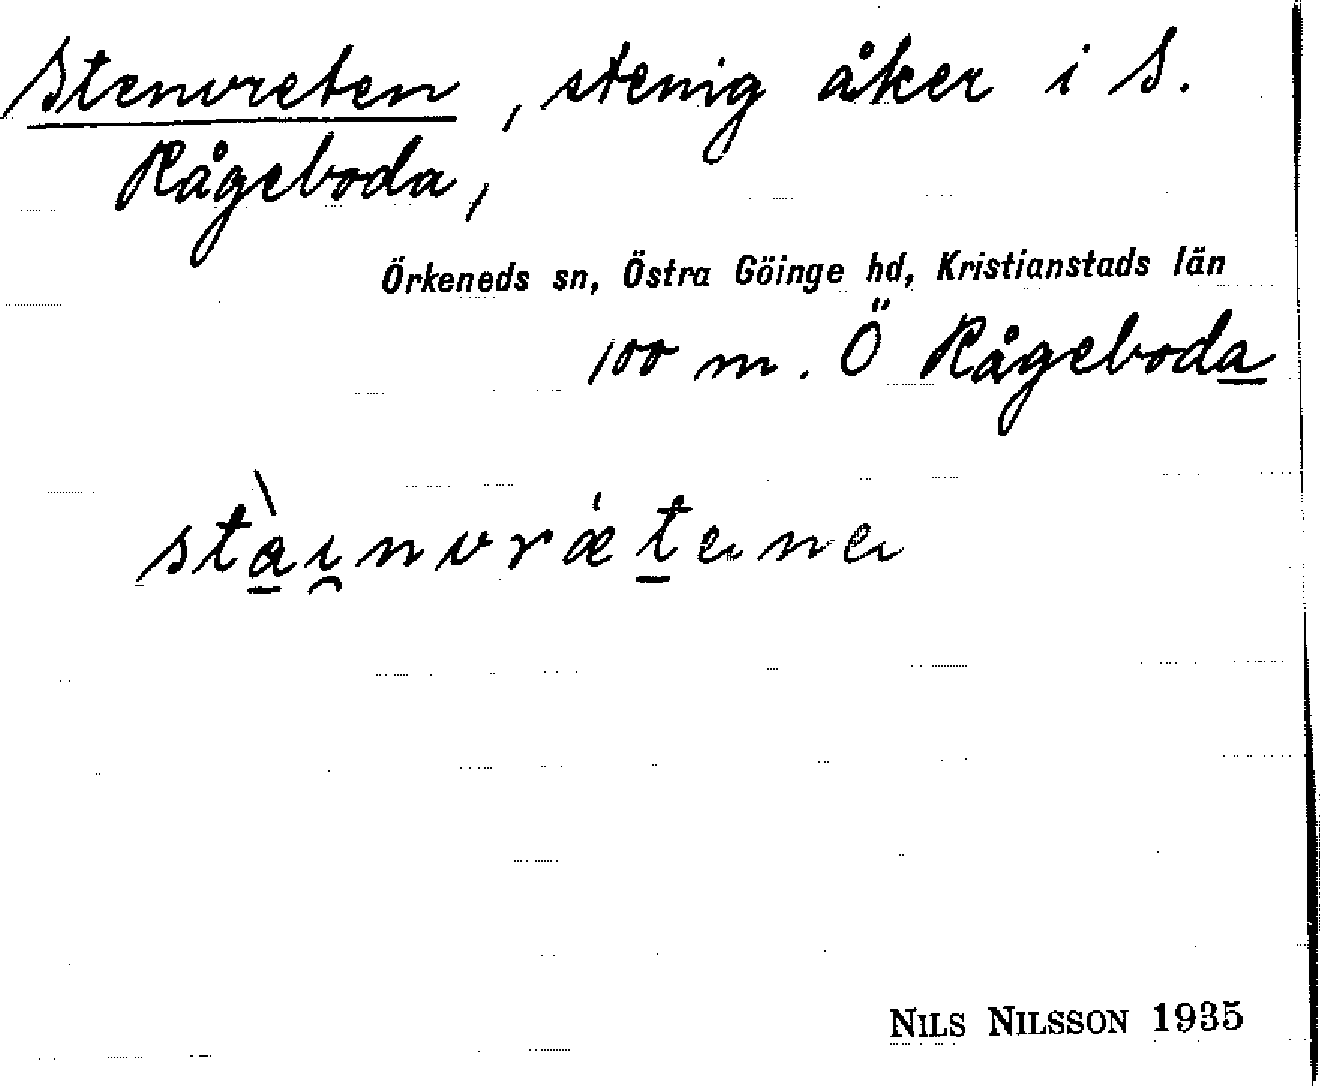 Stenvreten, stenig åker i S.
Rågeboda,
Örkeneds sn, Östra Göinge hd, Kristianstads län
100 m. Ö Rågeboda
NILS NILSSON 1935